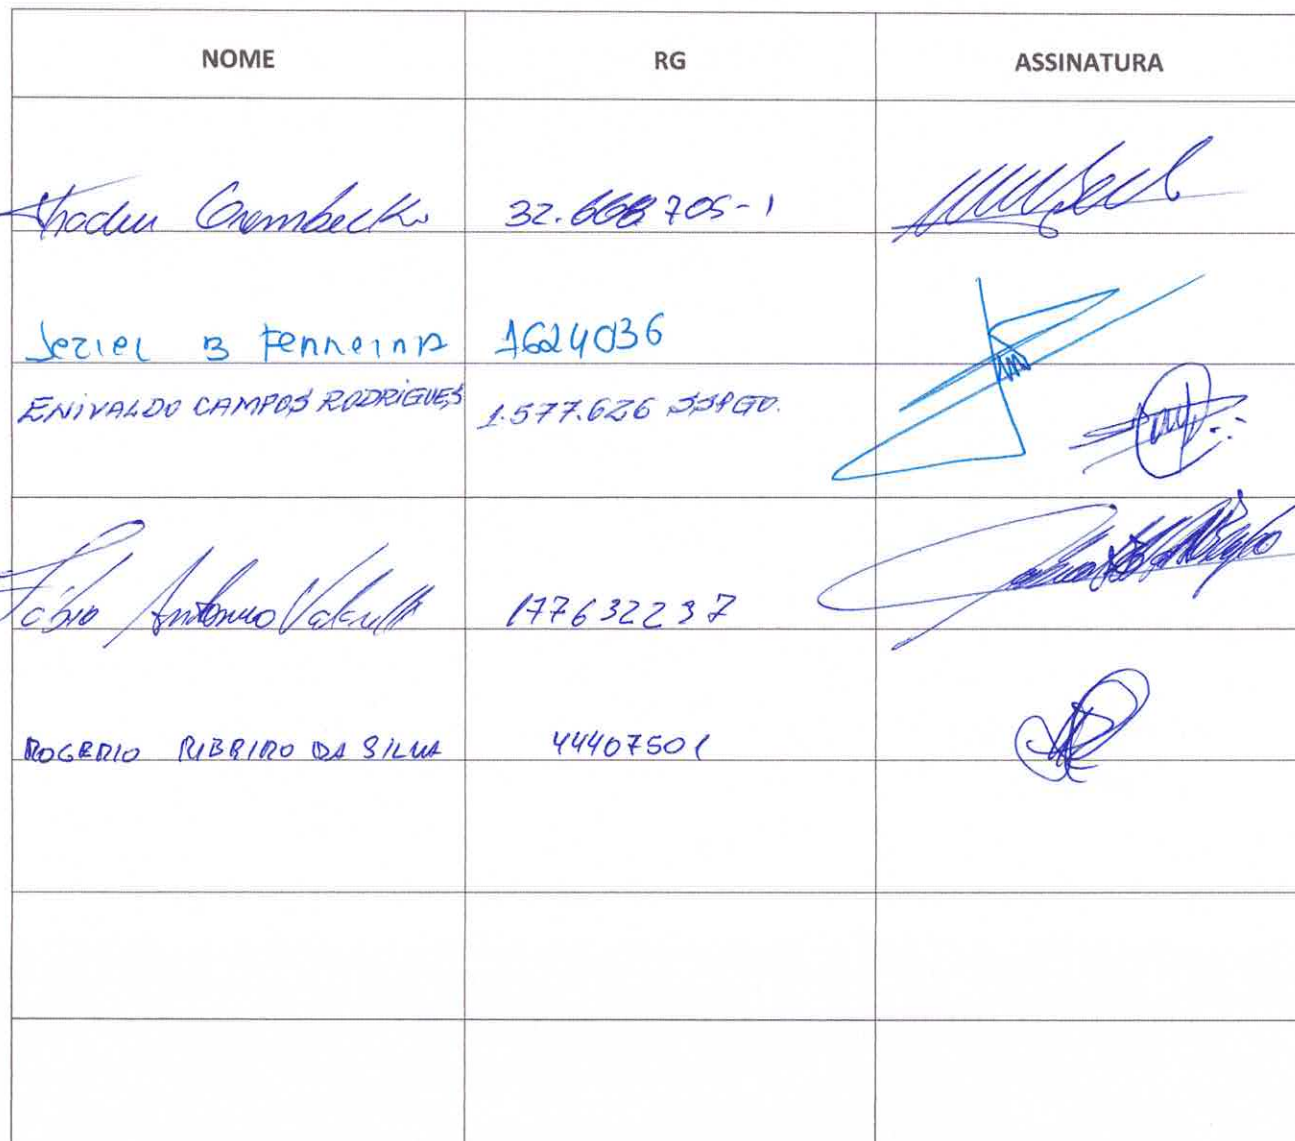 NOME RG ASSINATURA
Thadeu Crembecki 32.668705-1
Jeziel B Ferreira 1624036
ENIVALDO CAMPOS RODRIGUES 1.577.626 SSPGO.
Fábio Antonio 177632237
ROGERIO RIBEIRO DA SILVA 44407501